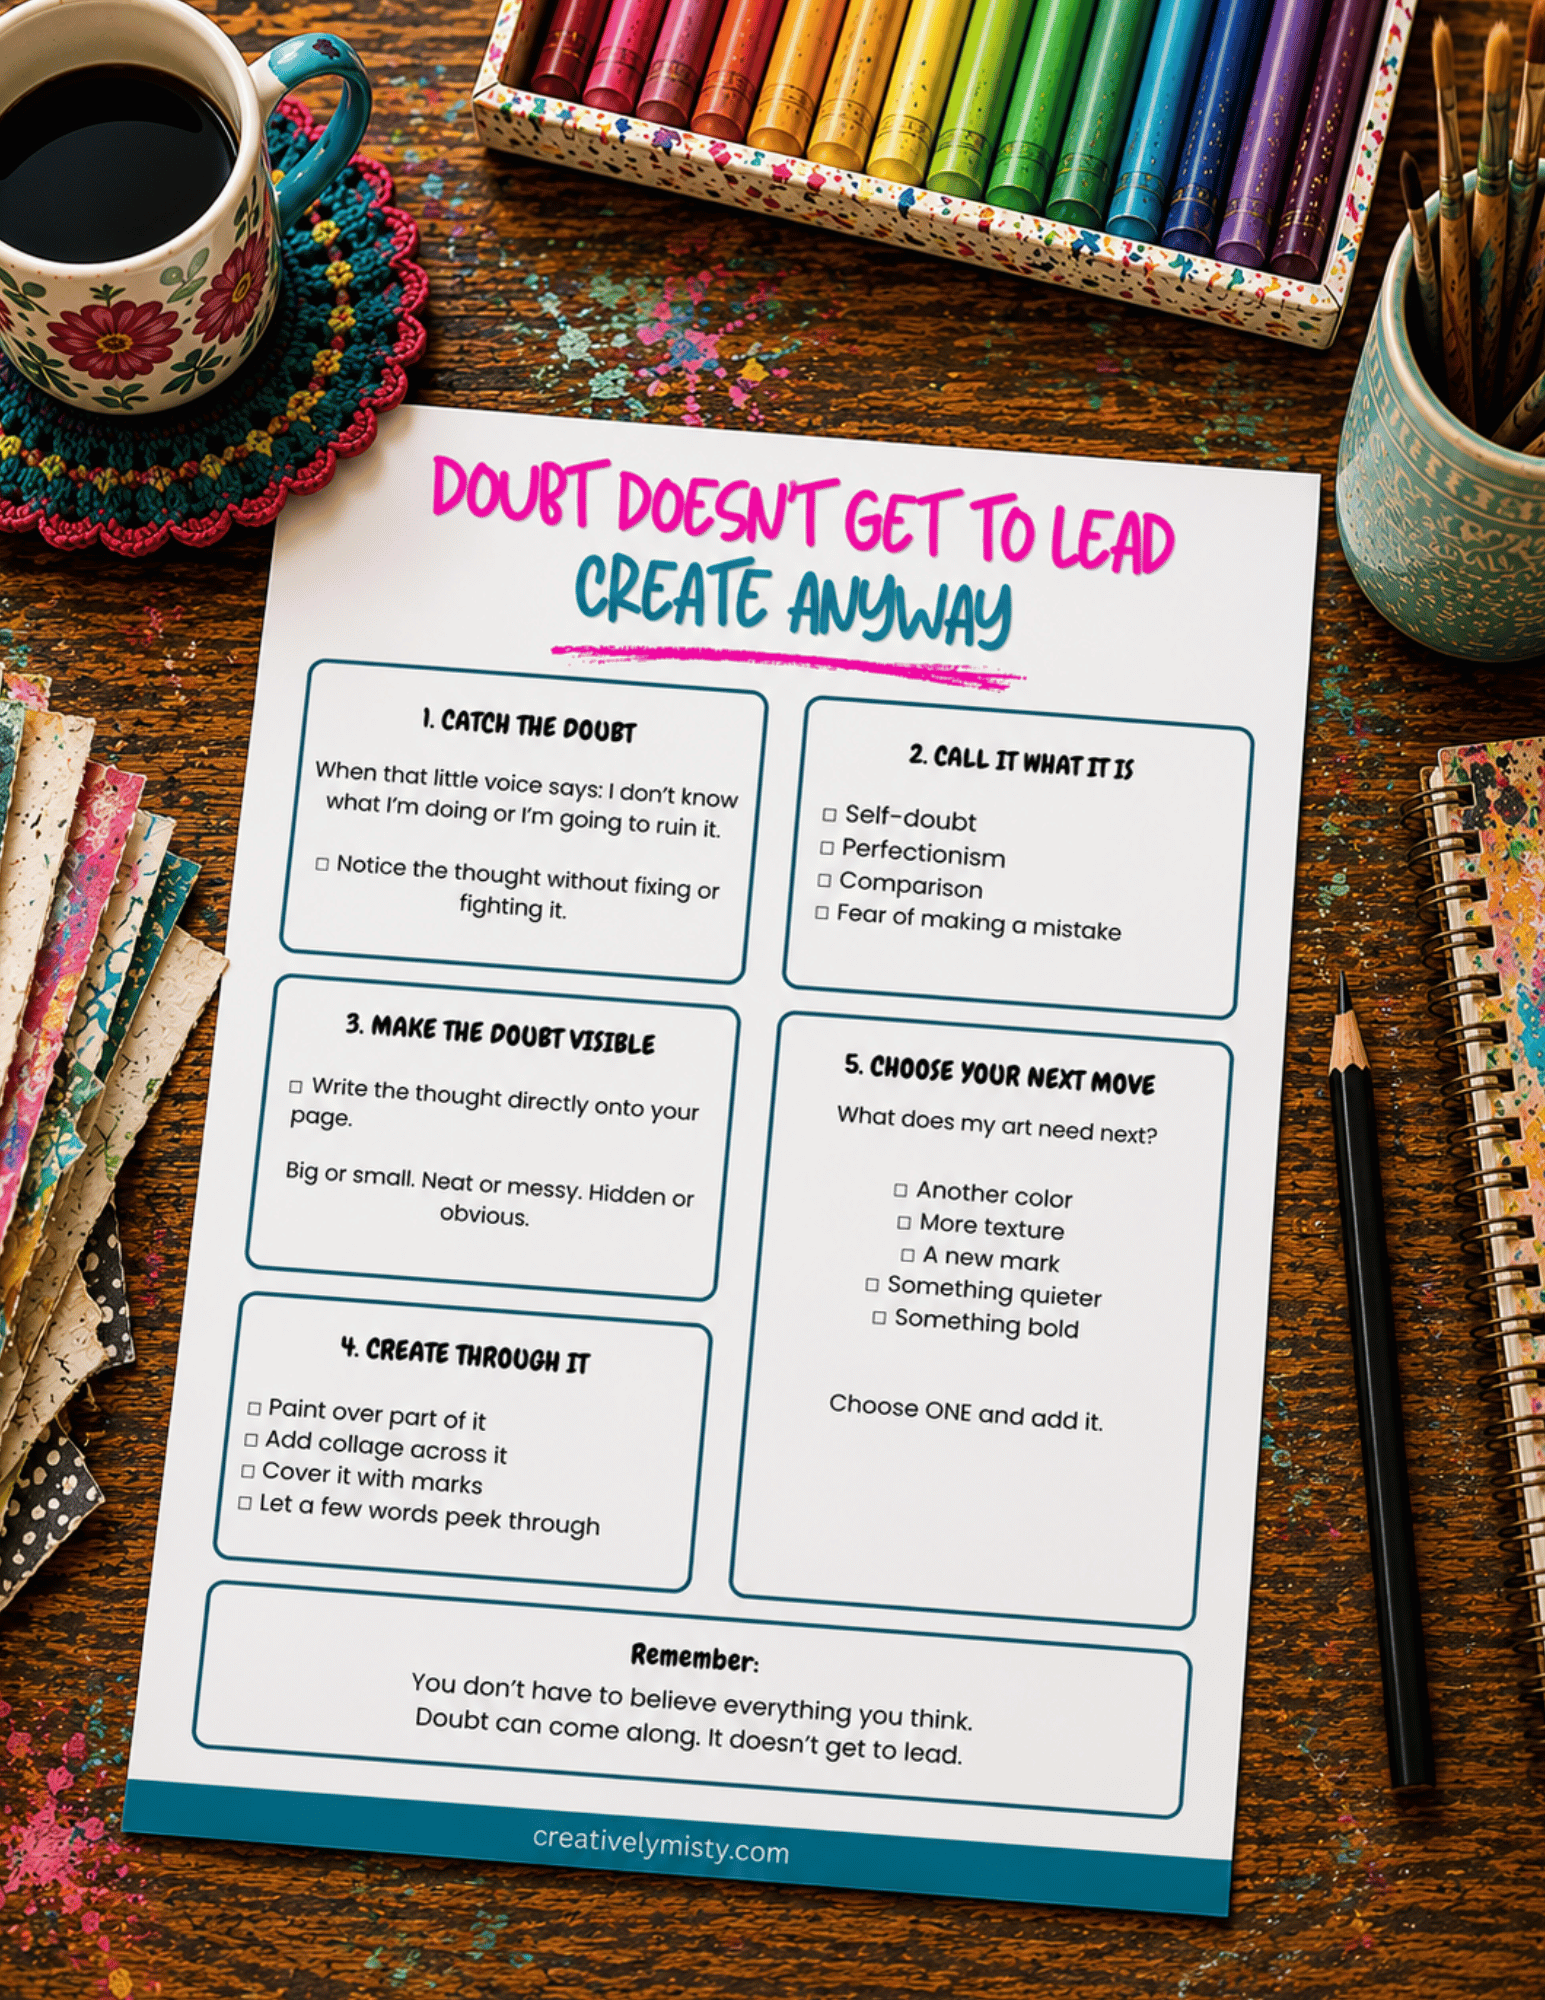 DOUBT DOESN'T GET TO LEAD
CREATE ANYWAY
1. CATCH THE DOUBT
When that little voice says: I don't know
what I'm doing or I'm going to ruin it.
□ Notice the thought without fixing or
fighting it.
2. CALL IT WHAT IT IS
□ Self-doubt
□ Perfectionism
□ Comparison
□ Fear of making a mistake
3. MAKE THE DOUBT VISIBLE
□ Write the thought directly onto your
page.
Big or small. Neat or messy. Hidden or
obvious.
4. CREATE THROUGH IT
□ Paint over part of it
□ Add collage across it
□ Cover it with marks
□ Let a few words peek through
5. CHOOSE YOUR NEXT MOVE
What does my art need next?
□ Another color
□ More texture
□ A new mark
□ Something quieter
□ Something bold
Choose ONE and add it.
Remember:
You don't have to believe everything you think.
Doubt can come along. It doesn't get to lead.
creativelymisty.com